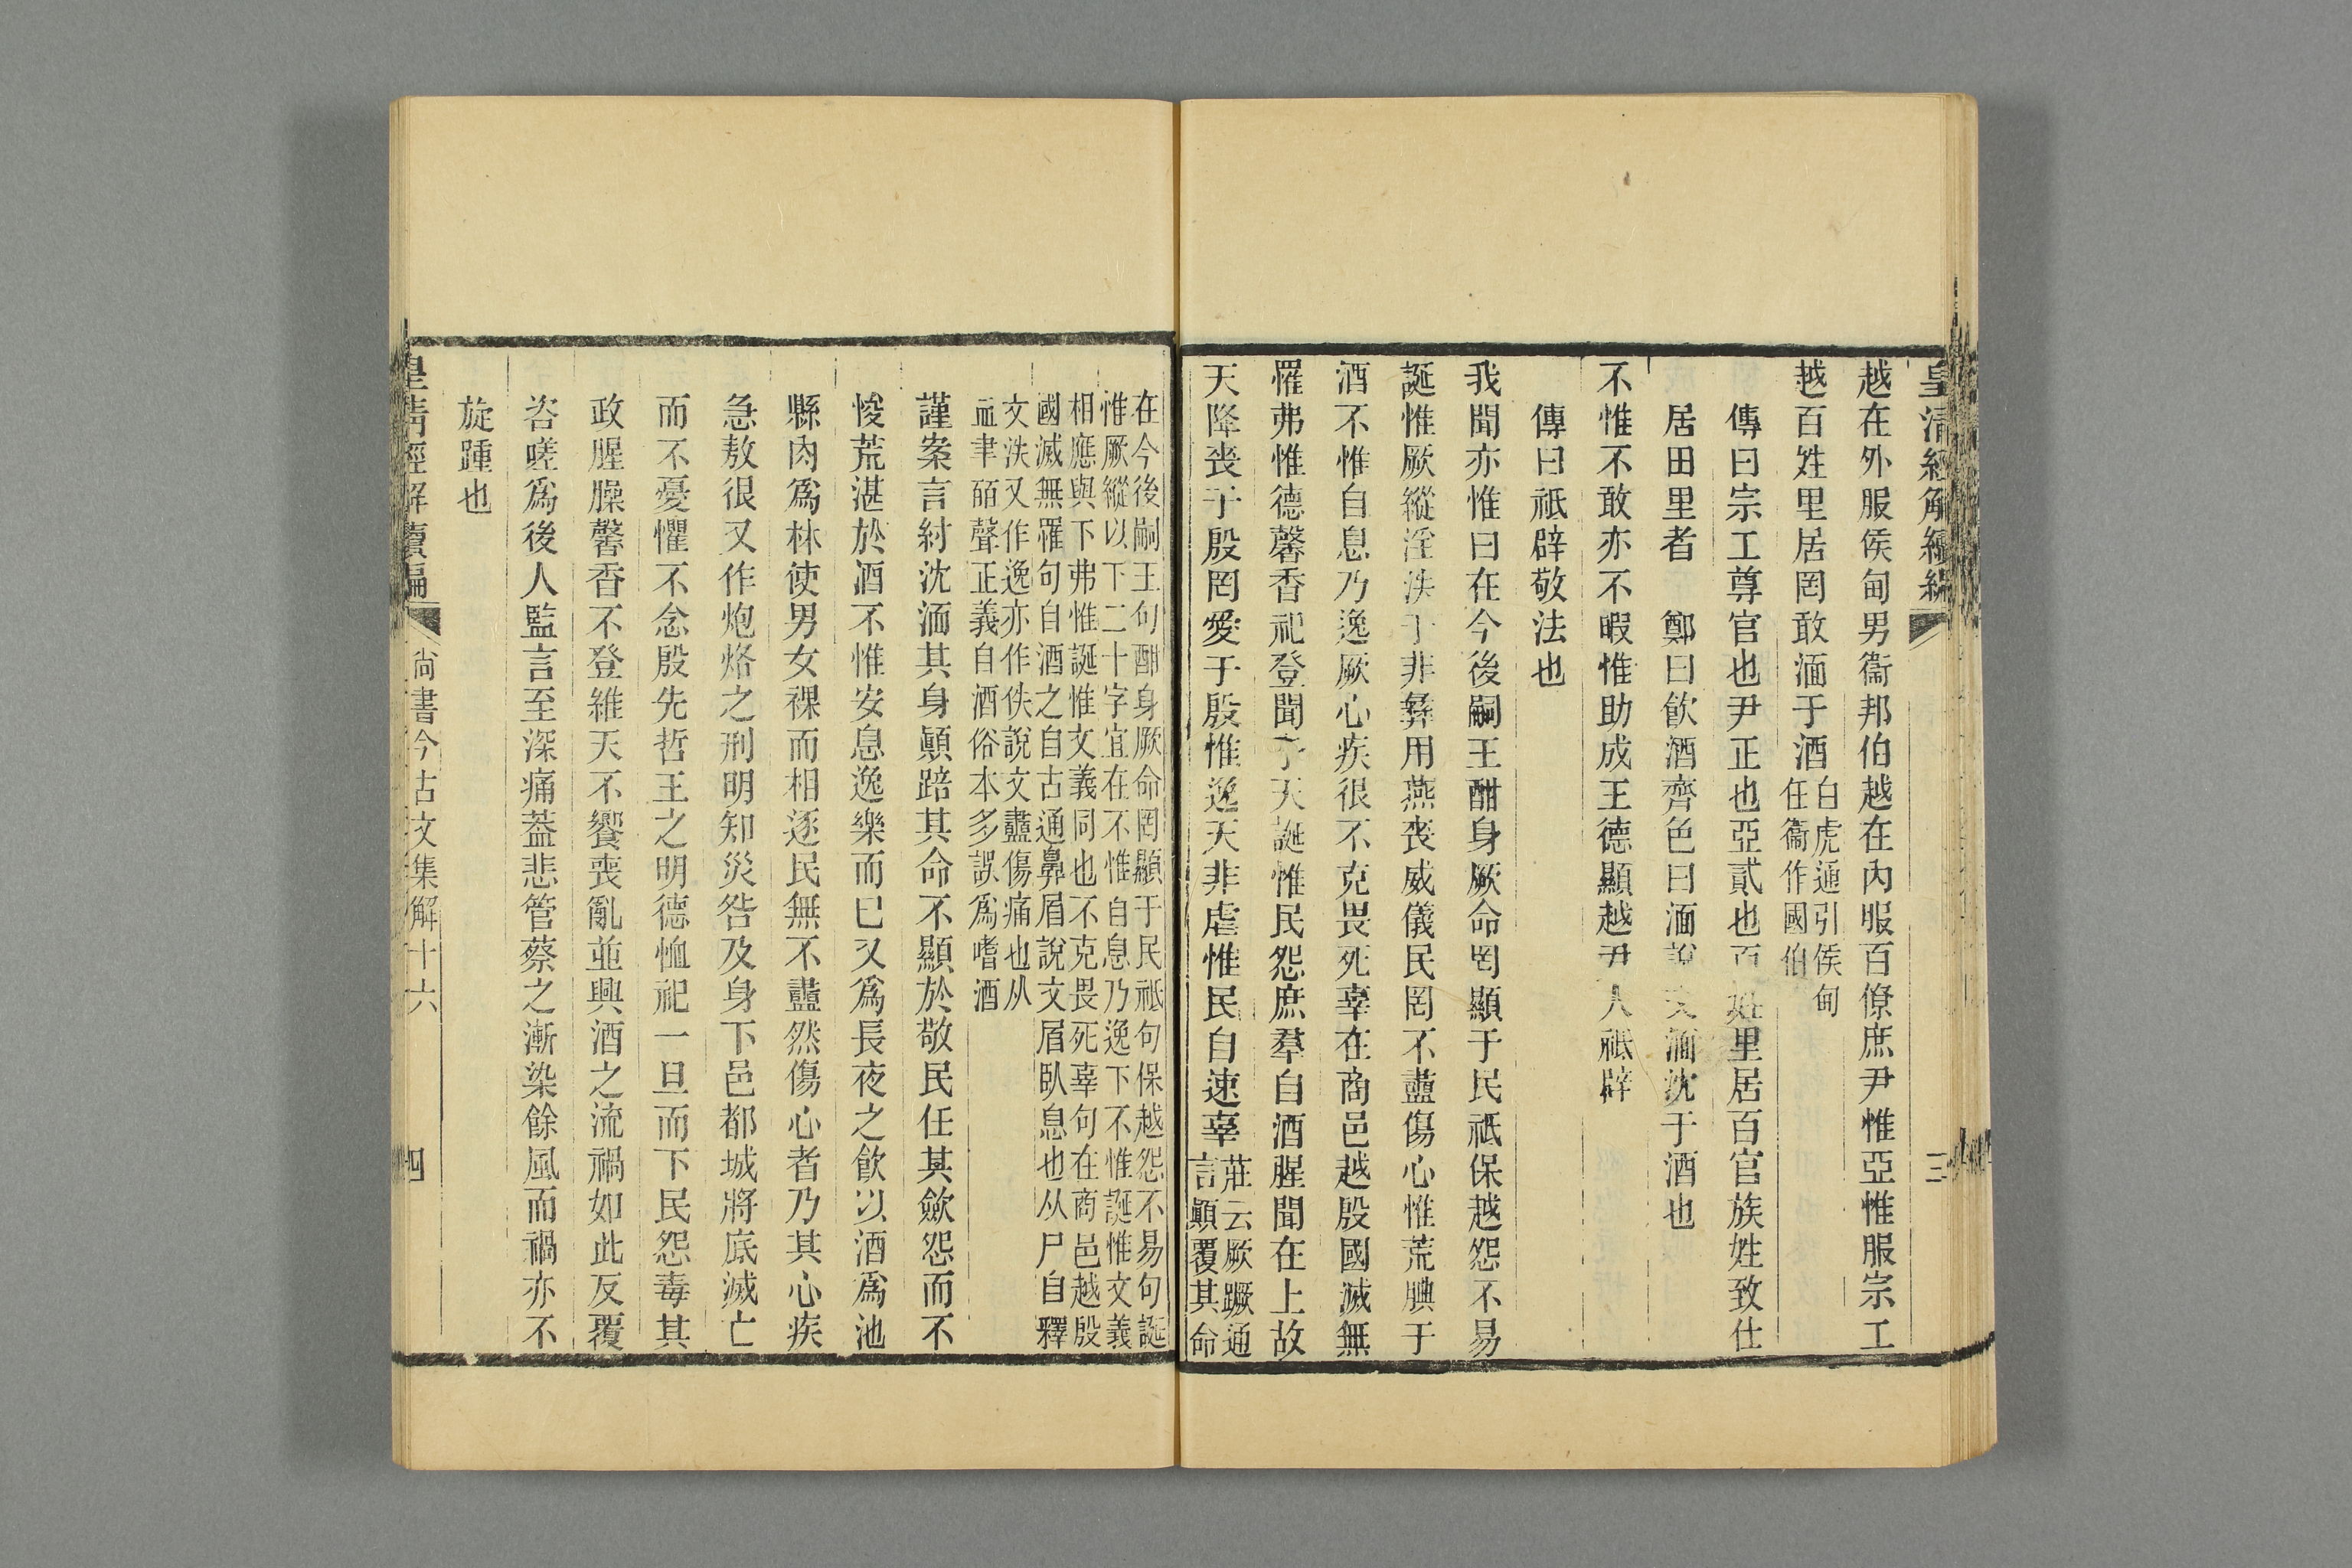 皇清經解續編
三
越在外服侯甸男衞邦伯越在內服百僚庶尹惟亞惟服宗工
越百姓里居罔敢湎于酒白虎通引侯甸
任衞作國伯
傳曰宗工尊官也尹正也亞貳也百姓里居百官族姓致仕
居田里者　鄭曰飮酒齊色曰湎說文湎沈于酒也
不惟不敢亦不暇惟助成王德顯越尹人祗辟
傳曰祇辟敬法也
我聞亦惟曰在今後嗣王酣身厥命罔顯于民祇保越怨不易
誕惟厥縱淫泆于非彝用燕喪威儀民罔不衋傷心惟荒腆于
酒不惟自息乃逸厥心疾很不克畏死辜在商邑越殷國滅無
罹弗惟德馨香祀登聞于天誕惟民怨庶羣自酒腥聞在上故
天降喪于殷罔愛于殷惟逸天非虐惟民自速辜莊云厥蹶通
言顚覆其命
在今後嗣王句酣身厥命罔顯于民祗句保越怨不易句誕
惟厥縱以下二十字宜在不惟自息乃逸下不惟誕惟文義
相應與下弗惟誕惟文義同也不克畏死辜句在商邑越殷
國滅無罹句自酒之自古通鼻眉說文眉臥息也从尸自釋
文泆又作逸亦作佚說文衋傷痛也从
血聿皕聲正義自酒俗本多誤爲嗜酒
謹案言紂沈湎其身顚踣其命不顯於敬民任其斂怨而不
悛荒湛於酒不惟安息逸樂而已又爲長夜之飮以酒爲池
縣肉爲林使男女裸而相逐民無不衋然傷心者乃其心疾
急敖很又作炮烙之刑明知災咎及身下邑都城將底滅亡
而不憂懼不念殷先哲王之明德恤祀一旦而下民怨毒其
政腥臊馨香不登維天不饗喪亂並興酒之流禍如此反覆
咨嗟爲後人監言至深痛葢悲管蔡之漸染餘風而禍亦不
旋踵也
皇清經解續編
尙書今古文集解十六
四